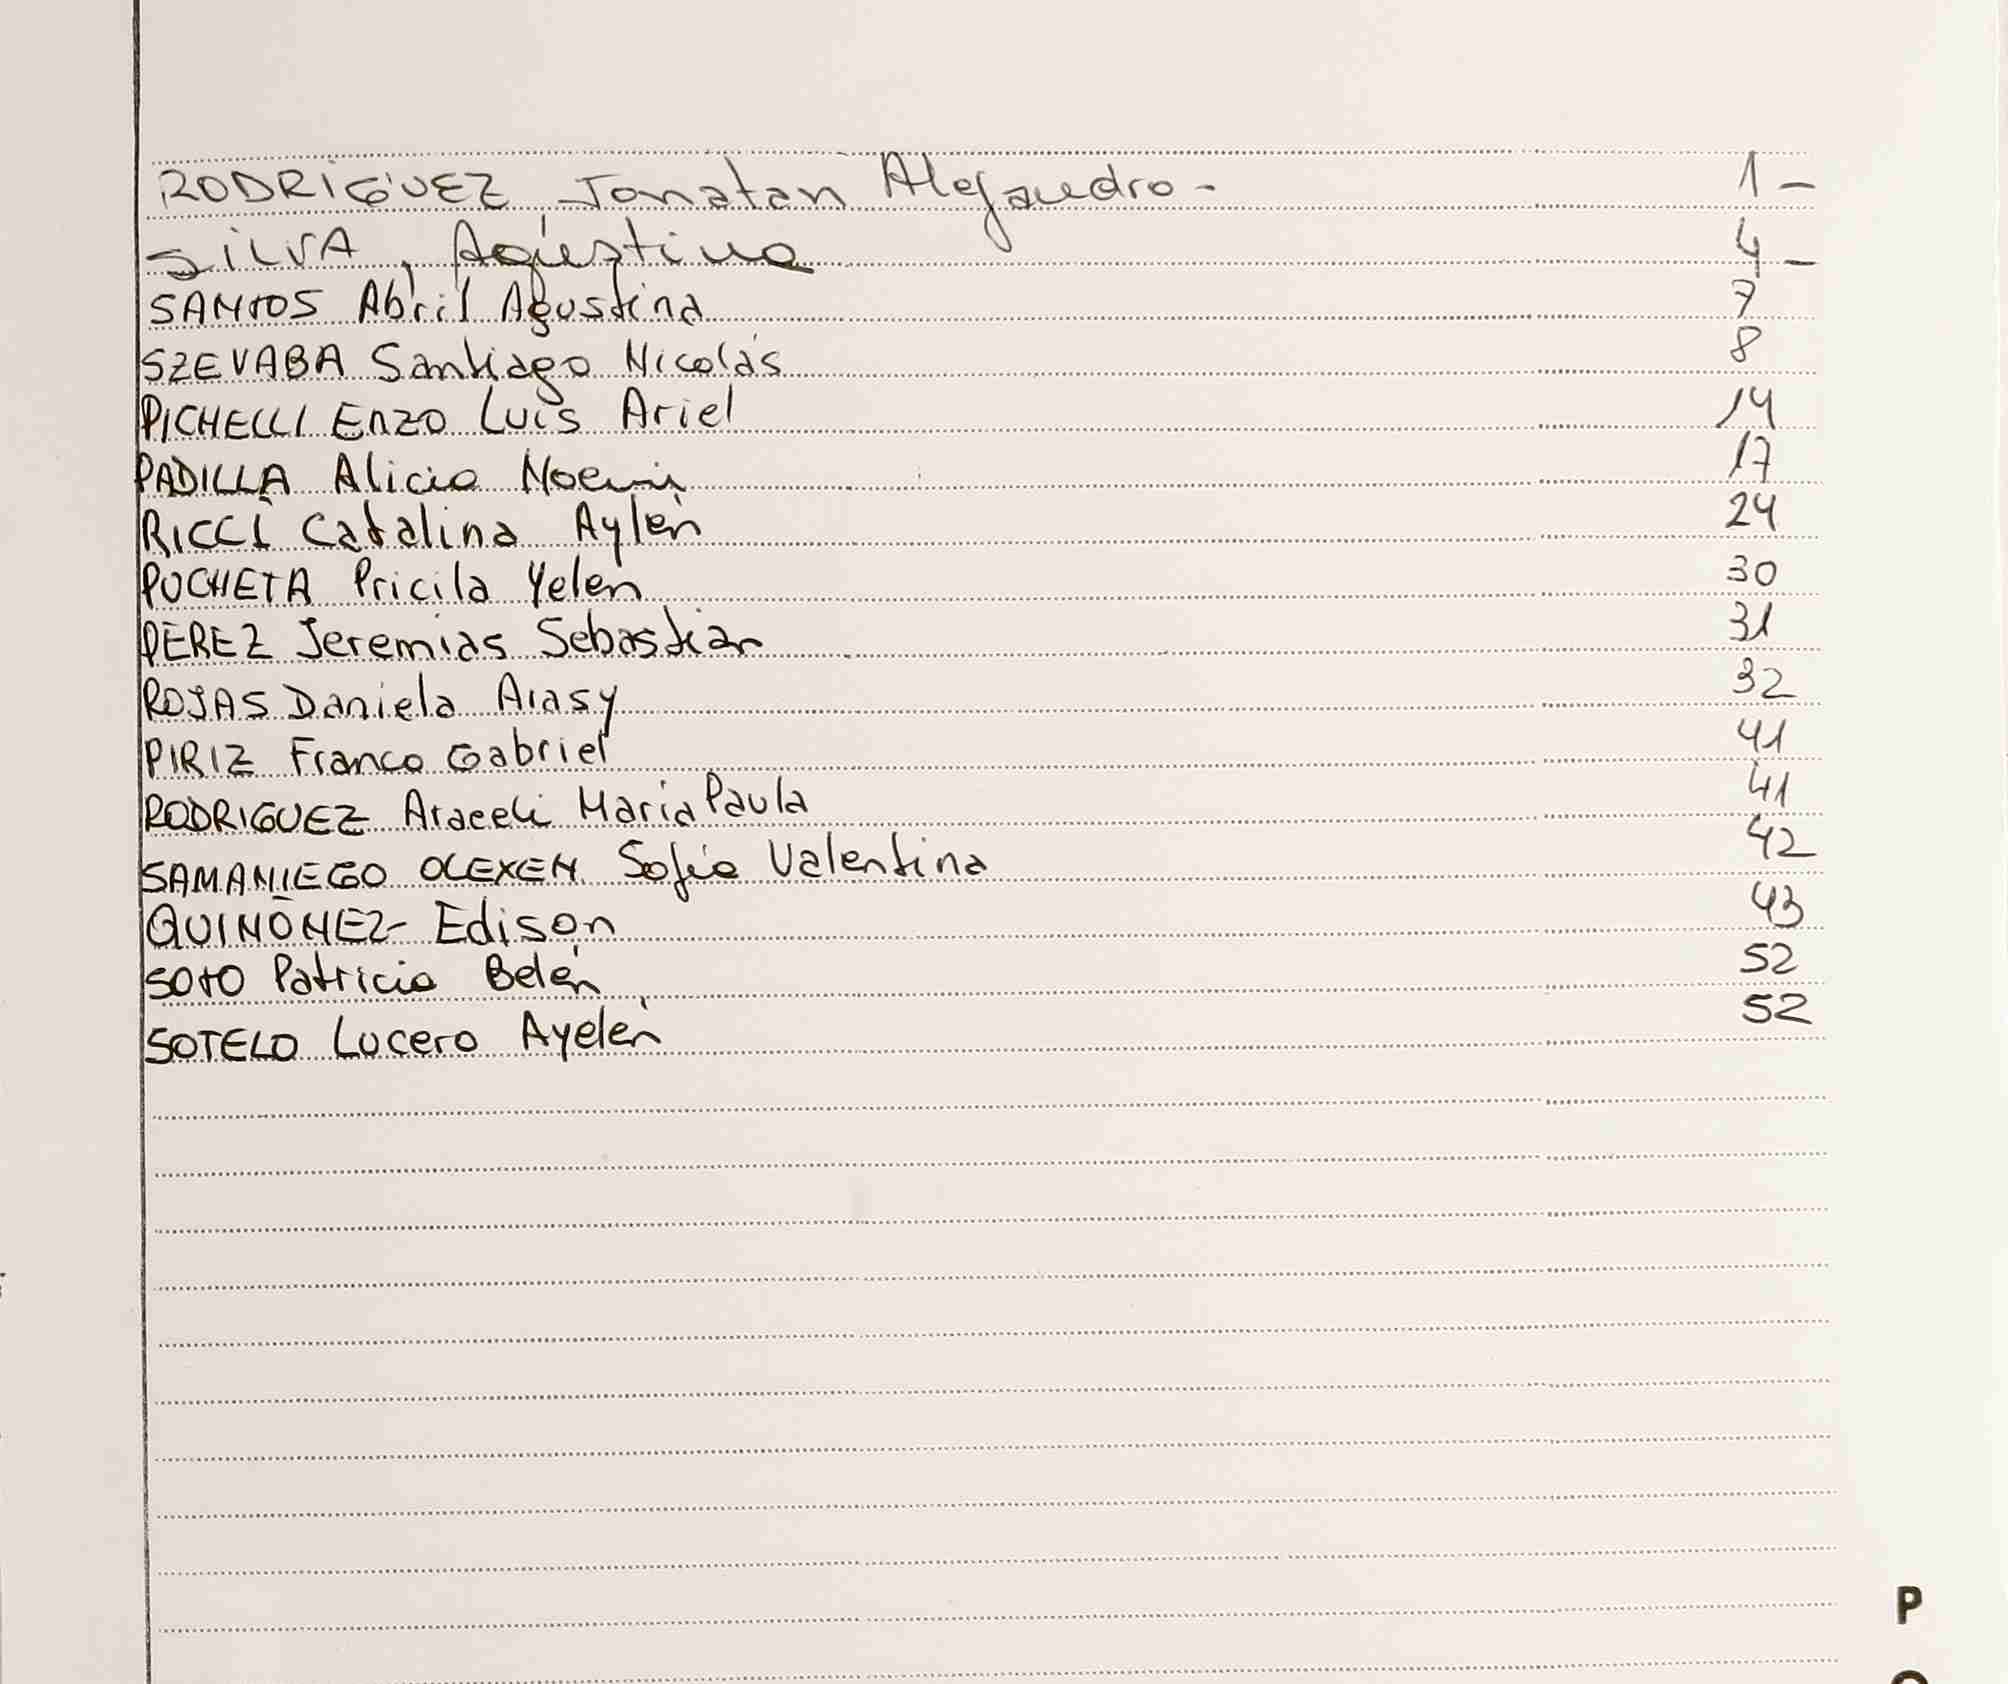 RODRIGUEZ, Jonatan Alejandro - 1 -
SILVA, Agustina 4 -
SANTOS Abril Agustina 7
SZEVABA Santiago Nicolás 8
PICHELLI Enzo Luis Ariel 14
PADILLA Alicia Noemi 17
RICCI Catalina Aylén 24
PUCHETA Pricila Yelen 30
PEREZ Jeremias Sebastian 31
ROJAS Daniela Arasy 32
PIRIZ Franco Gabriel 41
RODRIGUEZ Araceli Maria Paula 41
SAMANIEGO OLEXEN Sofia Valentina 42
QUINÓNEZ Edison 43
SOTO Patricia Belén 52
SOTELO Lucero Ayelén 52
P